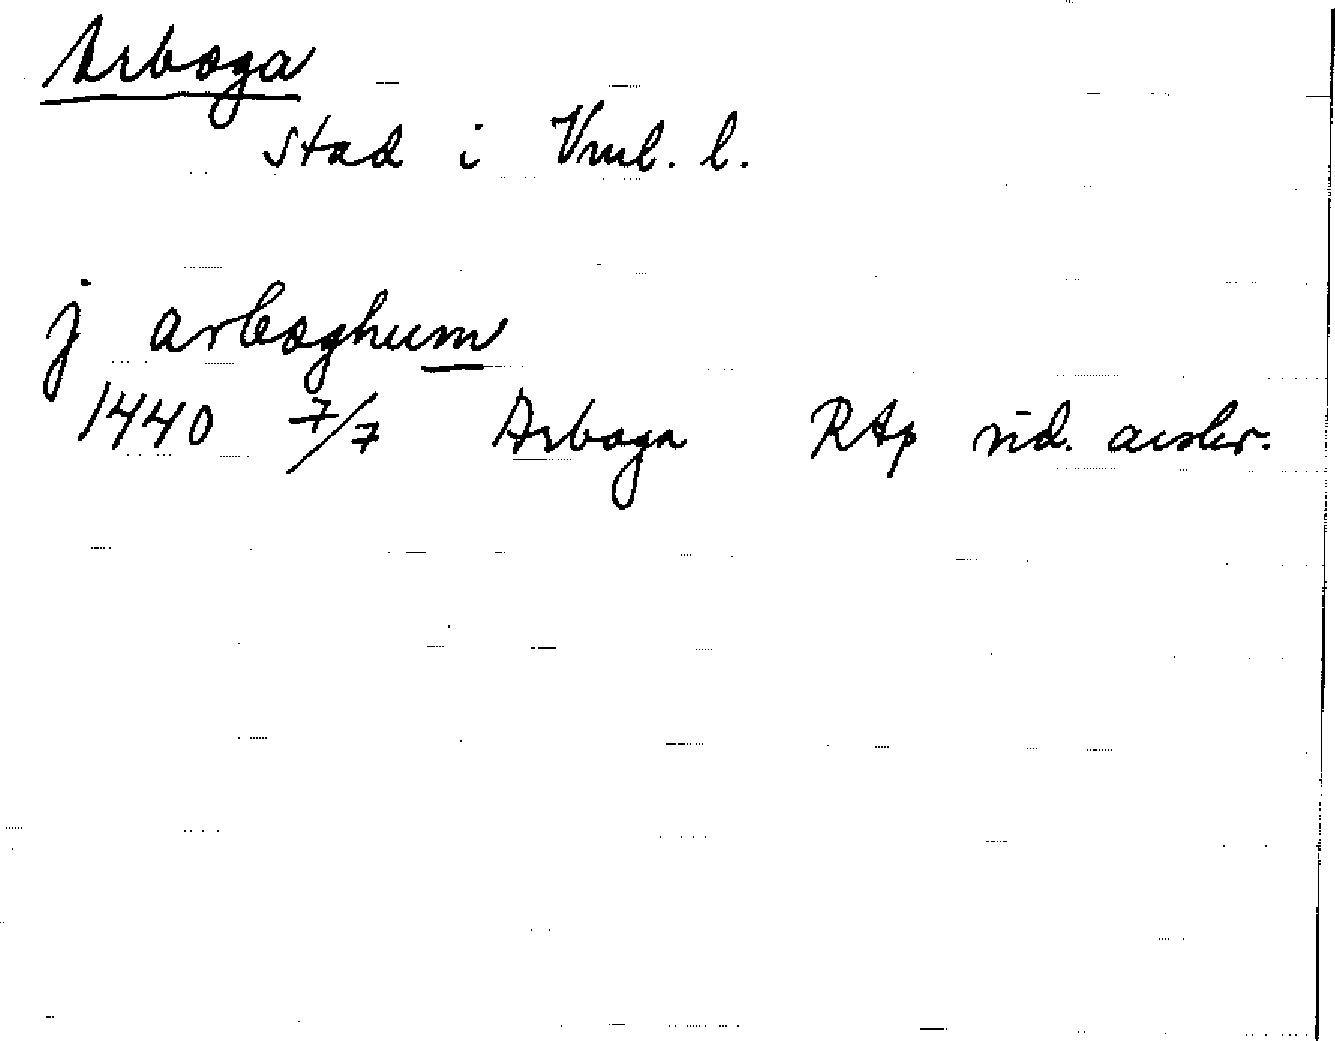 Arboga
stad i Vml. l.
j arboghum
1440 7/7 Arboga RAp vid. avskr.